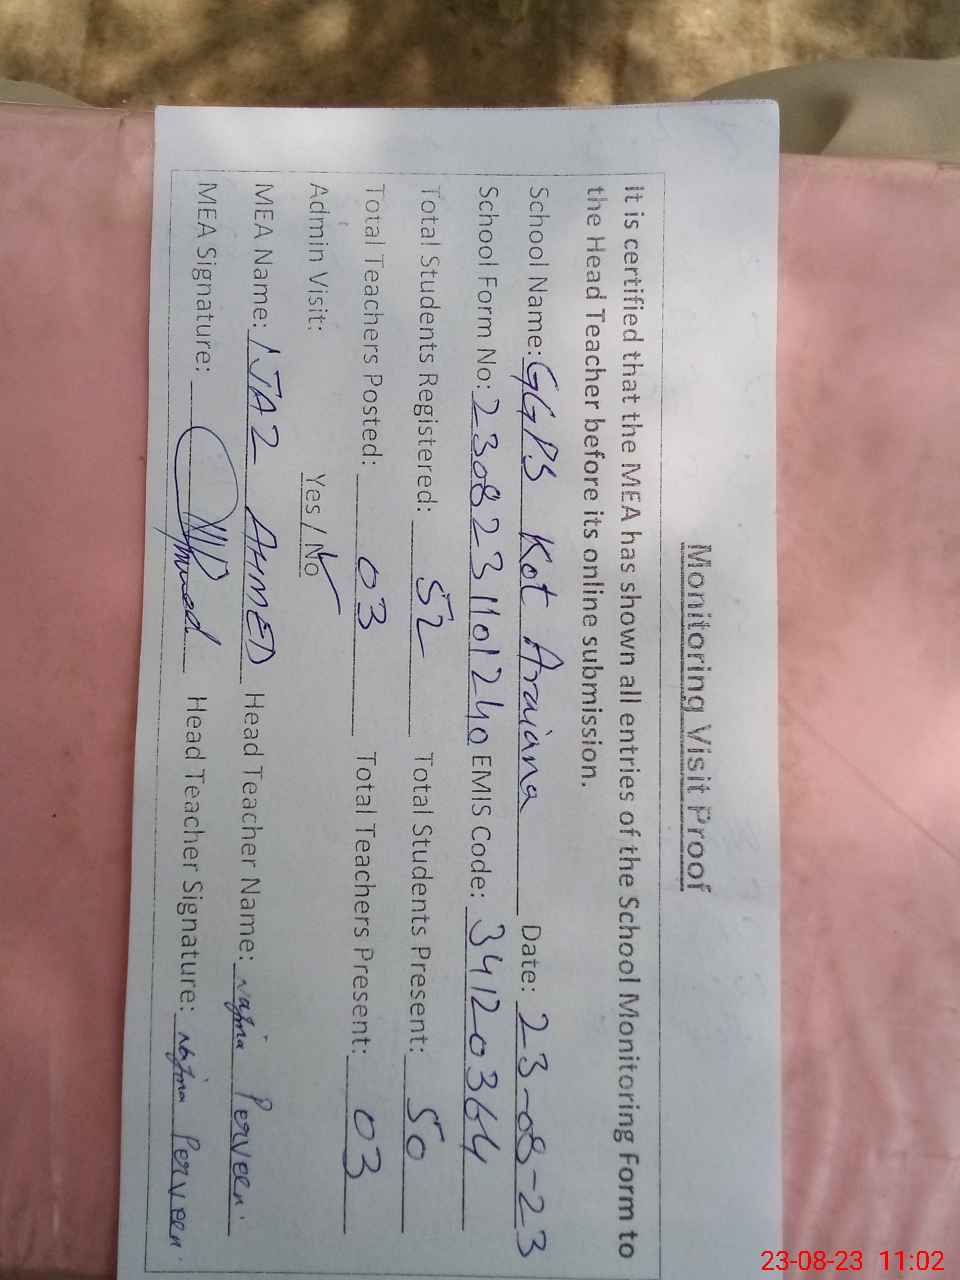 Monitoring Visit Proof
It is certified that the MEA has shown all entries of the School Monitoring Form to
the Head Teacher before its online submission.
School Name: GGPS Kot Araiana Date: 23-08-23
School Form No: 2308231101240 EMIS Code: 34120364
Total Students Registered: 52 Total Students Present: 50
Total Teachers Posted: 03 Total Teachers Present: 03
Admin Visit: Yes / No
MEA Name: IJAZ AHMED Head Teacher Name: Najma Perveen
MEA Signature: Head Teacher Signature: Najma Perveen
23-08-23 11:02